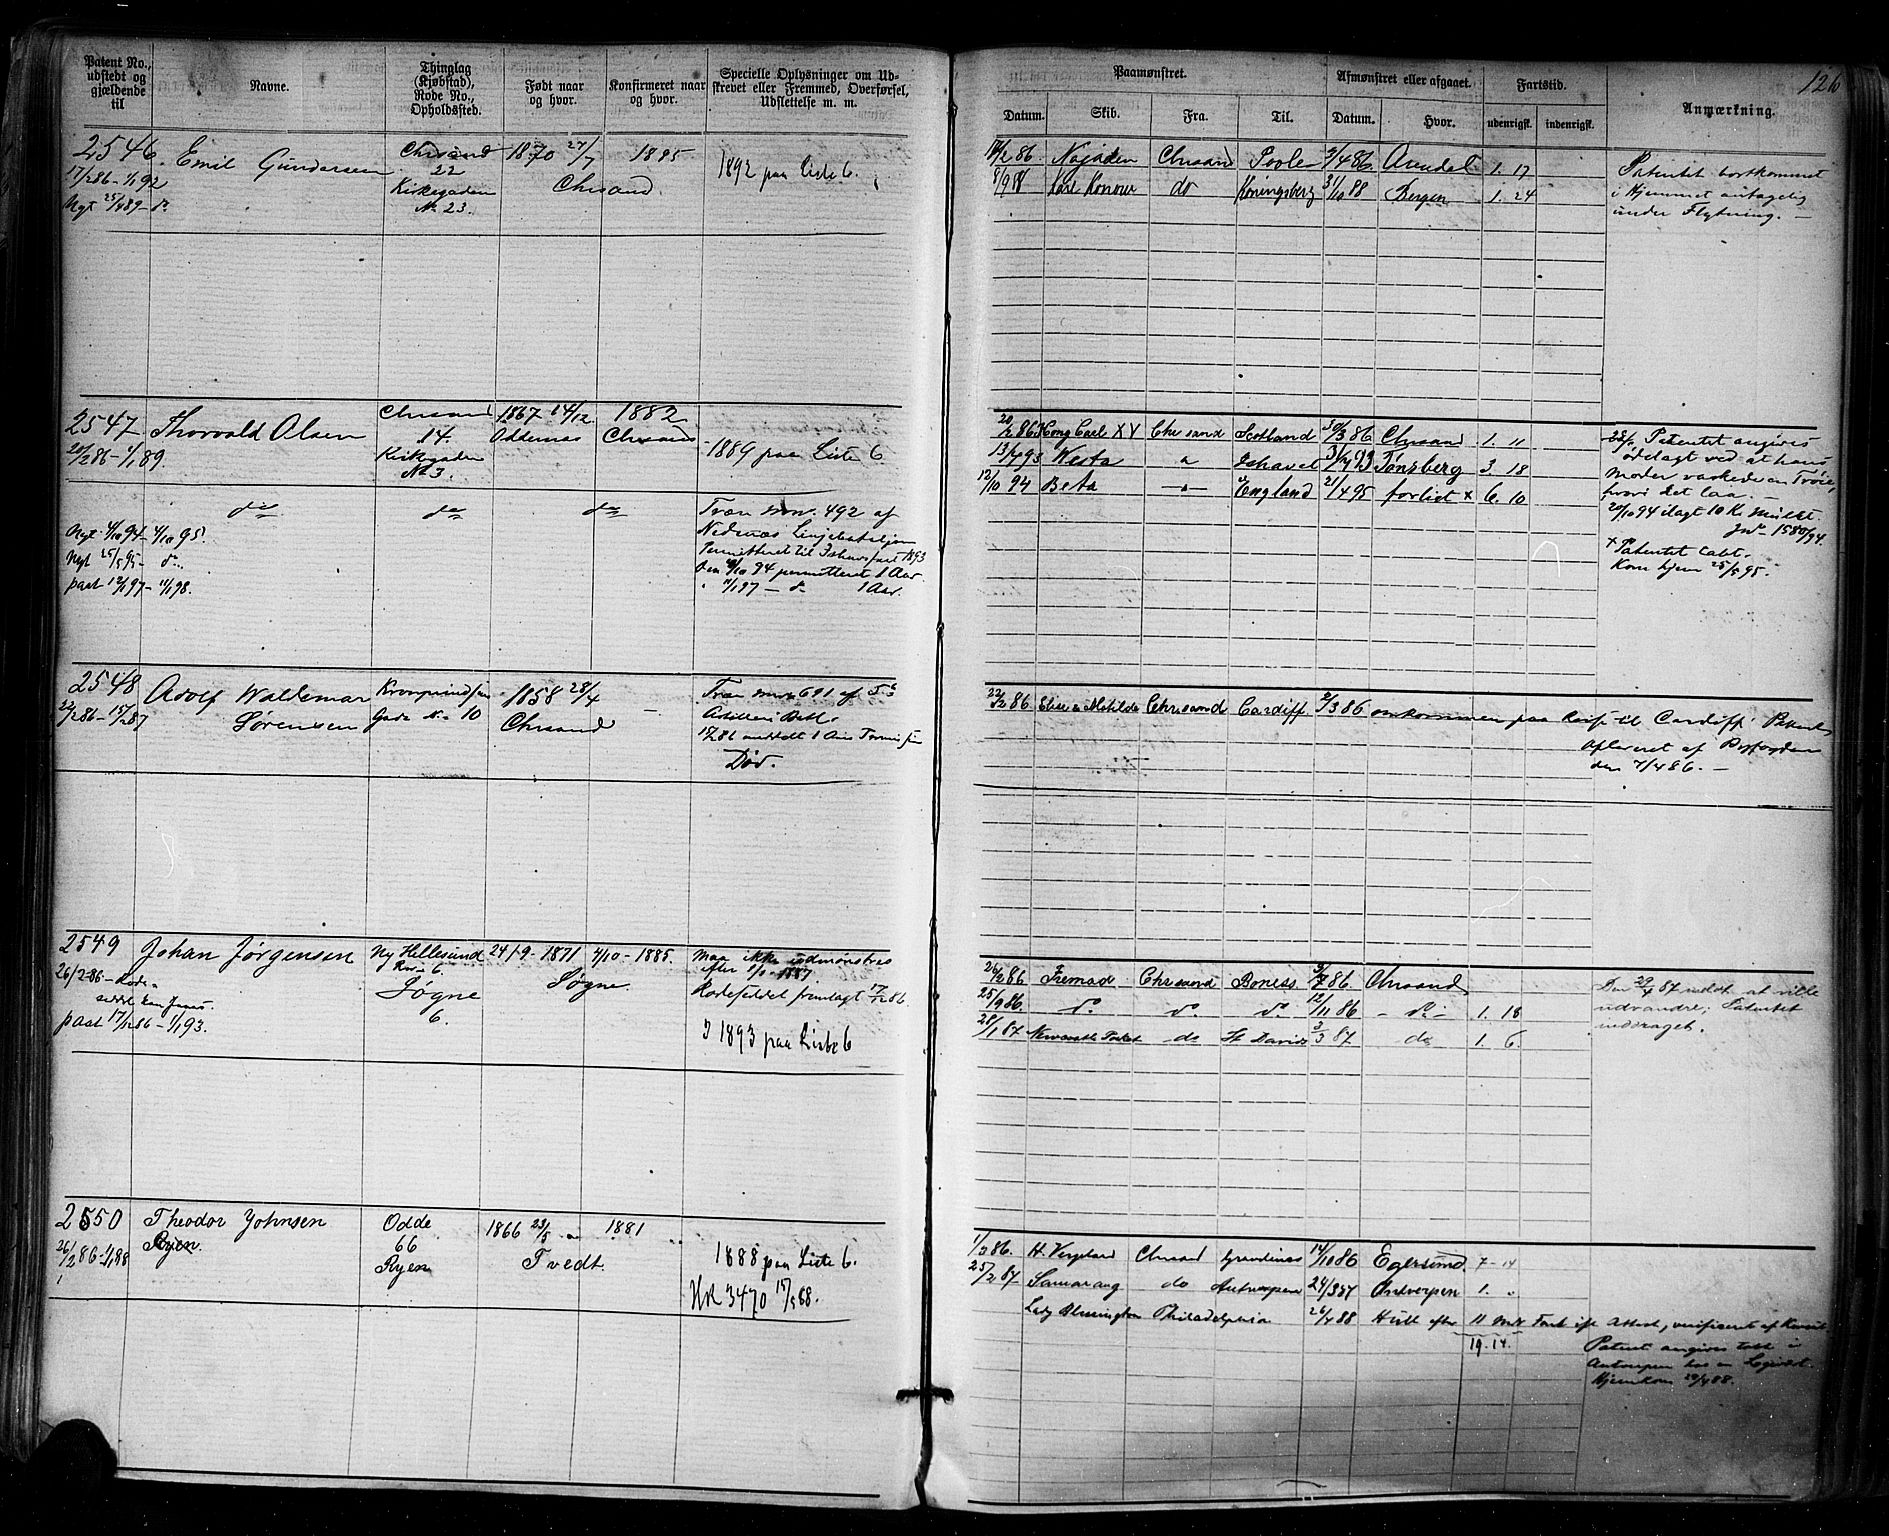 Patent No., udstedt og gjældende til
Navne.
Thinglag (Kjøbstad), Rode No., Opholdssted.
Født naar og hvor.
Konfirmeret naar og hvor.
Specielle Oplysninger om Udskrevet eller Fremmed, Overførsel, Udslettelse m. m.
Paamønstret.
Datum.
Skib.
Fra.
Til.
Afmønstret eller afgaaet.
Datum.
Hvor.
Fartstid.
udenrigsk.
indenrigsk.
Anmærkning.
126
2546.
17/2 86 - 1/1 92
Nyt 25/4 89 - do
Emil Gundersen
Chrsand
22
Kirkegaden
No 23.
1870 27/7
Chrsand.
1885
1892 paa Liste 6.
2 86. Najaden Chrsand Poole 9/4 86 Arendal 1. 17
do Køningsberg 3/10 88 Bergen 1. 24
Patentet bortkommet
i Hjemmet antagelig
under Flytning. —
2547
20/2 86 - 1/1 89.
Thorvald Olsen
Chrsand
14.
Kirkegaden
No 3.
1867 14/12
Oddernes
1882
Chrsand
1889 paa Liste 6
Nyt 4/10 94 - 4/10 95.
Nyt 25/5 95 - do.
paat 12/1 97 - 1/1 98.
do
do
do
492 af
Nedenæs
Permitteret til Ishavsfart 1893
10 94 permitteret 1 Aar.
11/1 97 — do 1 Aar.
2 86 Kong Carl XV Chrsand Scotland 30/3 86 Chrsand 1. 11
13/2 93 Vesta Ishavet 93 Tønsberg 3 18
12/10 94 Beta England 21/4 95 forlist x 6. 10
Patentet angives
ødelagt ved at hans
Moder vaskede en Trøie,
hvori det laa. —
20/10 94 ilagt 10 Kr Mulkt.
Jno 1580/94.
x Patentet tabt.
Kom hjem 25/5 95.
2548
22/2 86 - 15/2 87
Adolf Waldemar
Sørensen
Kronprindsens
Gade No 10
1858 28/4
Chrsand
—
691 af
Død.
22/2 86 Elise & Mathilde Chrsand Cardiff 2/3 86 omkommen paa Reise til Cardiff. Patentet
afleveret af Byfogden
den 7/4 86. —
2549
26/2 86 - Rode-
seddel
paat 17/12 86 - 1/1 93.
Johan Jørgensen
Ny Hellesund
6.
Søgne
6.
24/9 - 1871
Søgne.
4/10 - 1885.
Maa ikke udmønstres
efter 1/1 1887
Rodeseddel fremlagt 17/12 86
I 1893 paa Liste 6
26/2 86 Fremad Chrsand Boness 86 Chrsand
25/9 86. do. do. do 12/11 86 - do - 1. 18
28/1 87 do St Davids 3/3 87 do 1. 6.
Den 29/4 87 meldt at ville
udvandre; Patentet
inddraget.
2550
26/2 86 - 1/1 88
Theodor Johnsen
Ryen.
Odde
66
Ryen
1866 23/5
Tvedt.
1881
1888 paa Liste 6.
HR 3470 88.
1/3 86. H. Vergeland Chrsand 14/10 86 Egersund. 7 - 14
25/2 87 Samarang do Antwerpen 24/3 87 Antverpen 1. "
Lady Blessington Philadelphia 26/4 88 Hull efter 11 Mdr Fart ifl Attest, verificeret af
19. 14.
Patent angives tabt i
Antwerpen
Hjemkom 29/4 88.